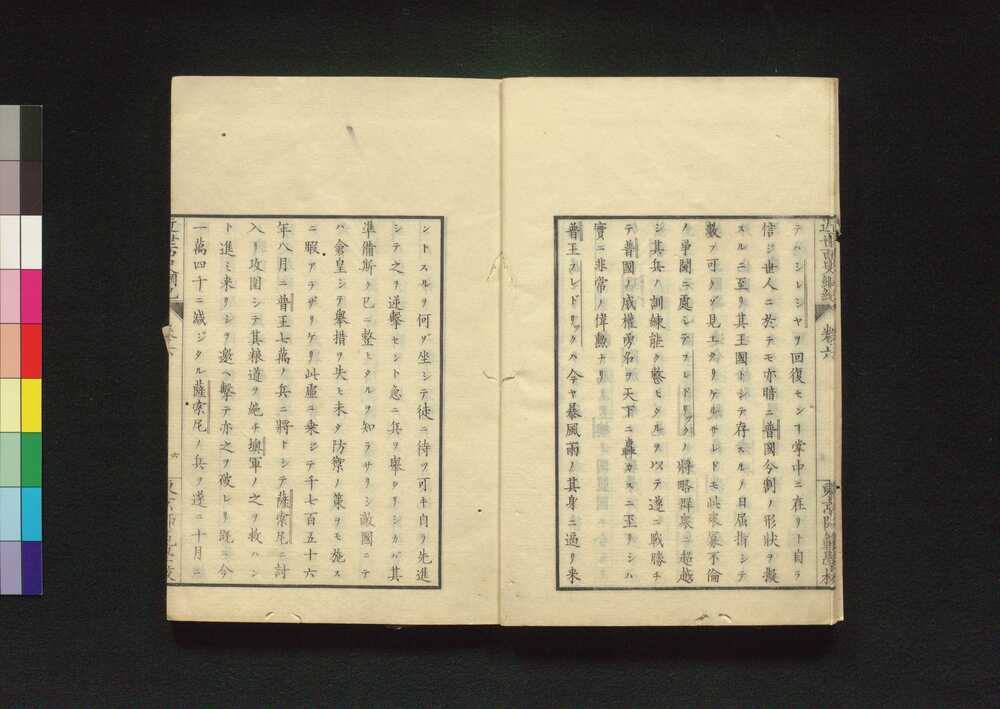 テハシレシヤヲ回復センヿ掌中ニ在リト自ラ
信ジ世人ニ於テモ亦暗ニ普國今割ノ形狀ヲ擬
スルニ至リ其王國トシテ存スルノ日屈指シテ
數フ可クゾ見エタリケルサレドモ此衆寡不倫
ノ爭鬪ニ處シテフレドリックノ將略群衆ニ超越
シ其兵ハ訓練能ク整ヒタルヲ以テ遂ニ戰勝チ
テ普國ノ威權勇名ヲ天下ニ轟カスニ至リシハ
實ニ非常ノ偉勲ナリ
普王フレドリックハ今ヤ暴風雨ノ其身ニ過リ来
卷六
ントスルヲ何ゾ坐シテ徒ニ待ヲ可キ自ラ先進
シテ之ヲ逆擊セント急ニ兵ヲ擧ケリシカバ其
準備斯ク已ニ整ヒタルヲ知ラサリシ敵國ニテ
ハ倉皇シテ擧措ヲ失ヒ未タ防禦ノ策ヲモ施ス
ニ暇アラザリケリ此虛ニ乘ジテ千七百五十六
年八月ニ普王七萬ノ兵ニ將トシテ薩索尼ニ討
入リ攻圍シテ其粮道ヲ絶チ墺軍ノ之ヲ救ハン
ト進ミ来リシヲ邀ヘ擊テ亦之ヲ破レリ既ニ今
一萬四千ニ減ジタル薩索尼ノ兵ヲ遂ニ十月ニ
六